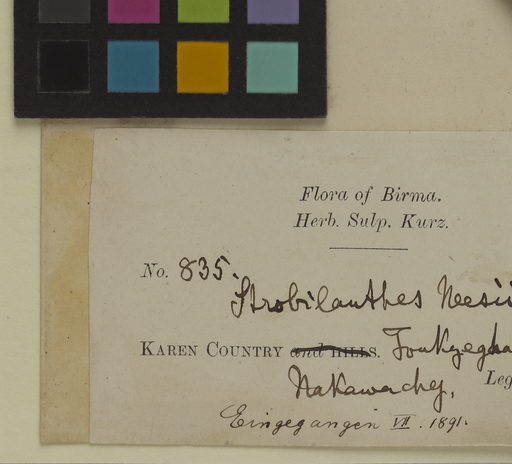 Flora of Birma.
Herb. Sulp. Kurz.
No. 835.
Strobilanthes Neesii
KAREN COUNTRY and HILLS.
Leg
Eingegangen VII. 1891.